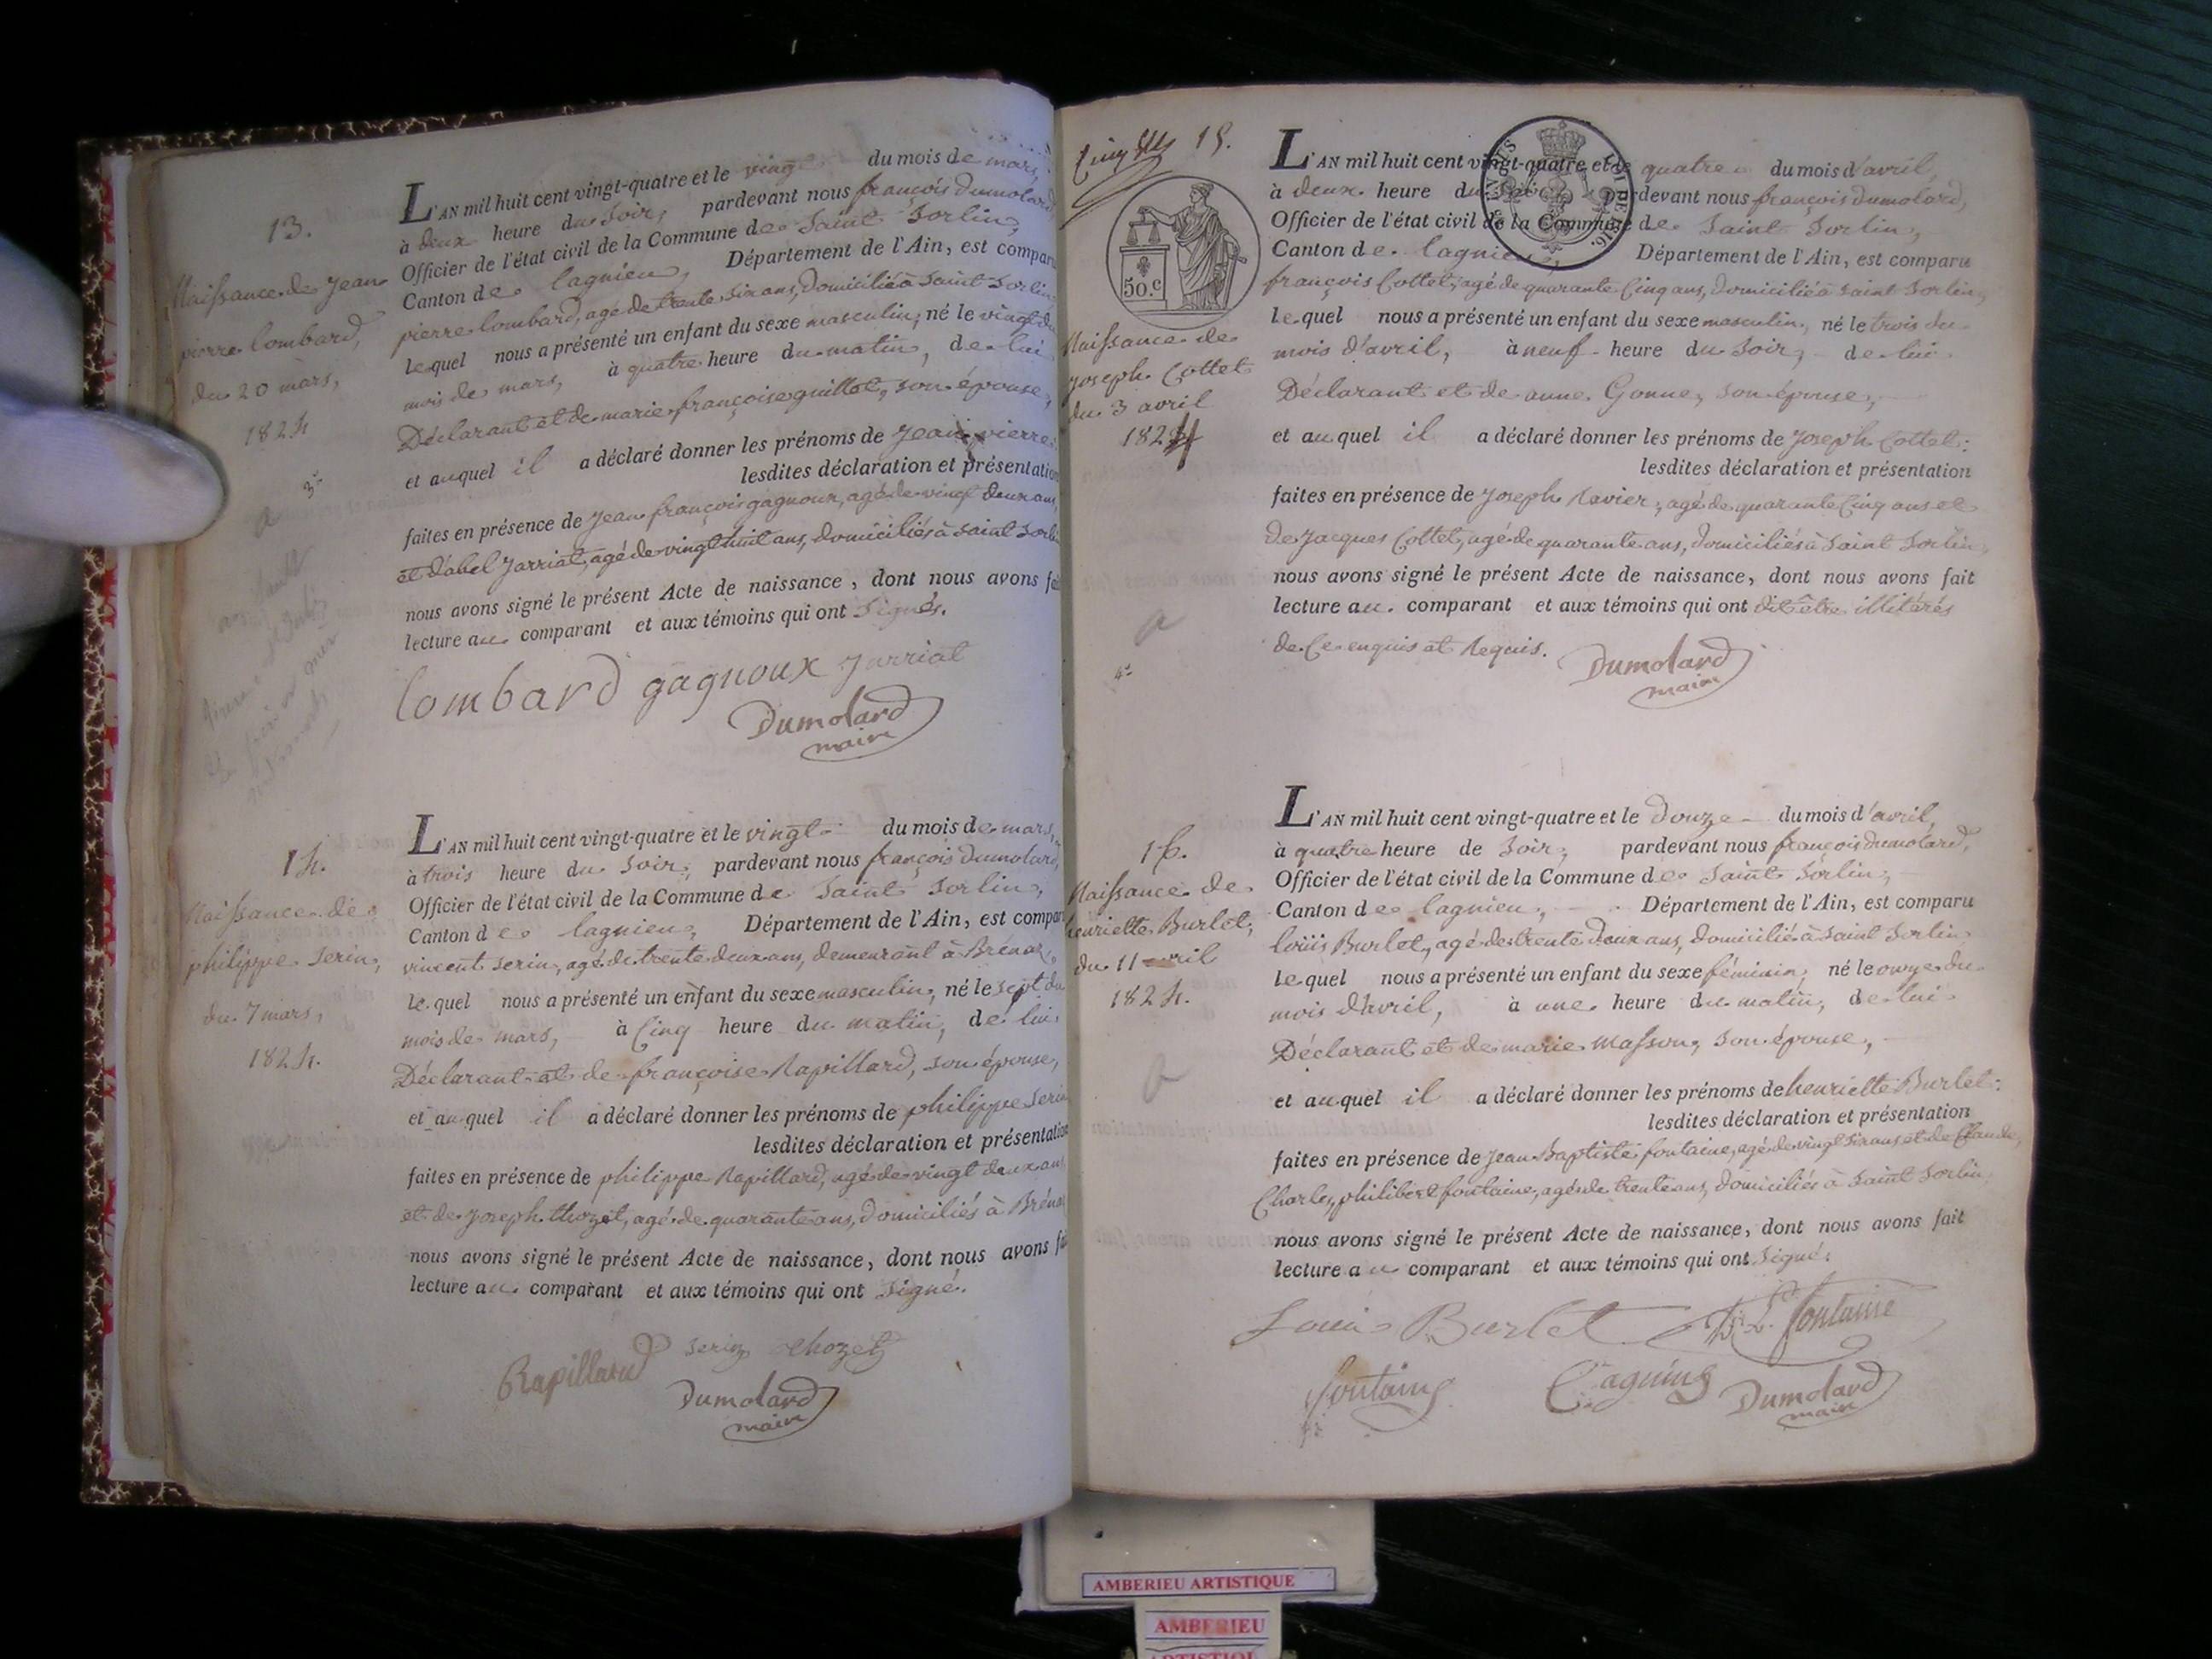 13.
Naissance de Jean
pierre lombard,
du 20 mars,
1824
L'AN mil huit cent vingt-quatre et le vingt du mois de mars,
à deux heure du soir, pardevant nous françois Dumolard,
Officier de l'état civil de la Commune de Saint Sorlin,
Canton de lagnieu, Département de l'Ain, est comparu
pierre lombard, agé de trente six ans, domicilié à Saint Sorlin
lequel nous a présenté un enfant du sexe masculin, né le vingt du
mois de mars, à quatre heure du matin, de lui
Déclarant et de marie françoise guillot, son épouse,
et auquel il a déclaré donner les prénoms de Jean pierre
lesdites déclaration et présentation
faites en présence de Jean françois gagnoux, agé de vingt deux ans,
et d'abel Jarriat, agé de vingt huit ans, domiciliés à Saint Sorlin
nous avons signé le présent Acte de naissance, dont nous avons fait
lecture au comparant et aux témoins qui ont signés.
lombard gagnoux Jarriat
Dumolard
maire
14.
Naissance de
philippe Serin,
du 7 mars,
1824.
L'AN mil huit cent vingt-quatre et le vingt du mois de mars,
à trois heure du soir, pardevant nous françois Dumolard,
Officier de l'état civil de la Commune de Saint Sorlin,
Canton de lagnieu, Département de l'Ain, est comparu
vincent Serin, agé de trente deux ans, demeurant à Brénaz,
lequel nous a présenté un enfant du sexe masculin, né le sept du
mois de mars, à Cinq heure du matin, de lui
Déclarant et de françoise Rapillard, son épouse,
et auquel il a déclaré donner les prénoms de philippe Serin
lesdites déclaration et présentation
faites en présence de philippe Rapillard, agé de vingt deux ans
et de Joseph thozet, agé de quarante ans, domiciliés à Brénaz
nous avons signé le présent Acte de naissance, dont nous avons fait
lecture au comparant et aux témoins qui ont signé.
Rapillard Serin thozet
Dumolard
maire
15.
50.c
Naissance de
Joseph Cottet
du 3 avril
1824
L'AN mil huit cent vingt-quatre et le quatre du mois d'avril,
à deux heure du soir, pardevant nous françois Dumolard,
Officier de l'état civil de la Commune de Saint Sorlin,
Canton de lagnieu, Département de l'Ain, est comparu
françois Cottet, agé de quarante Cinq ans, domicilié à Saint Sorlin,
lequel nous a présenté un enfant du sexe masculin, né le trois du
mois d'avril, à neuf heure du soir, de lui
Déclarant et de anne Gonne, son épouse,
et auquel il a déclaré donner les prénoms de Joseph Cottet:
lesdites déclaration et présentation
faites en présence de Joseph Ravier, agé de quarante Cinq ans et
de Jacques Cottet, agé de quarante ans, domiciliés à Saint Sorlin,
nous avons signé le présent Acte de naissance, dont nous avons fait
lecture au comparant et aux témoins qui ont dit être illitérés
de Ce enquis et Requis.
Dumolard
maire
16.
Naissance de
henriette Burlet,
du 11 avril
1824.
L'AN mil huit cent vingt-quatre et le Douze du mois d'avril,
à quatre heure de soir, pardevant nous françois Dumolard,
Officier de l'état civil de la Commune de Saint Sorlin,
Canton de lagnieu, Département de l'Ain, est comparu
loüis Burlet, agé de trente deux ans, domicilié à Saint Sorlin,
lequel nous a présenté un enfant du sexe féminin, né le onze du
mois d'avril, à une heure du matin, de lui
Déclarant et de marie Masson, son épouse,
et auquel il a déclaré donner les prénoms de henriette Burlet:
lesdites déclaration et présentation
faites en présence de Jean Baptiste fontaine, agé de vingt six ans et de Claude
Charles philibert fontaine, agé de trente ans, domiciliés à Saint Sorlin
nous avons signé le présent Acte de naissance, dont nous avons fait
lecture au comparant et aux témoins qui ont signé.
Louis Burlet fontaine
fontaine
Dumolard
maire
AMBERIEU ARTISTIQUE
AMBERIEU
ARTISTIQUE